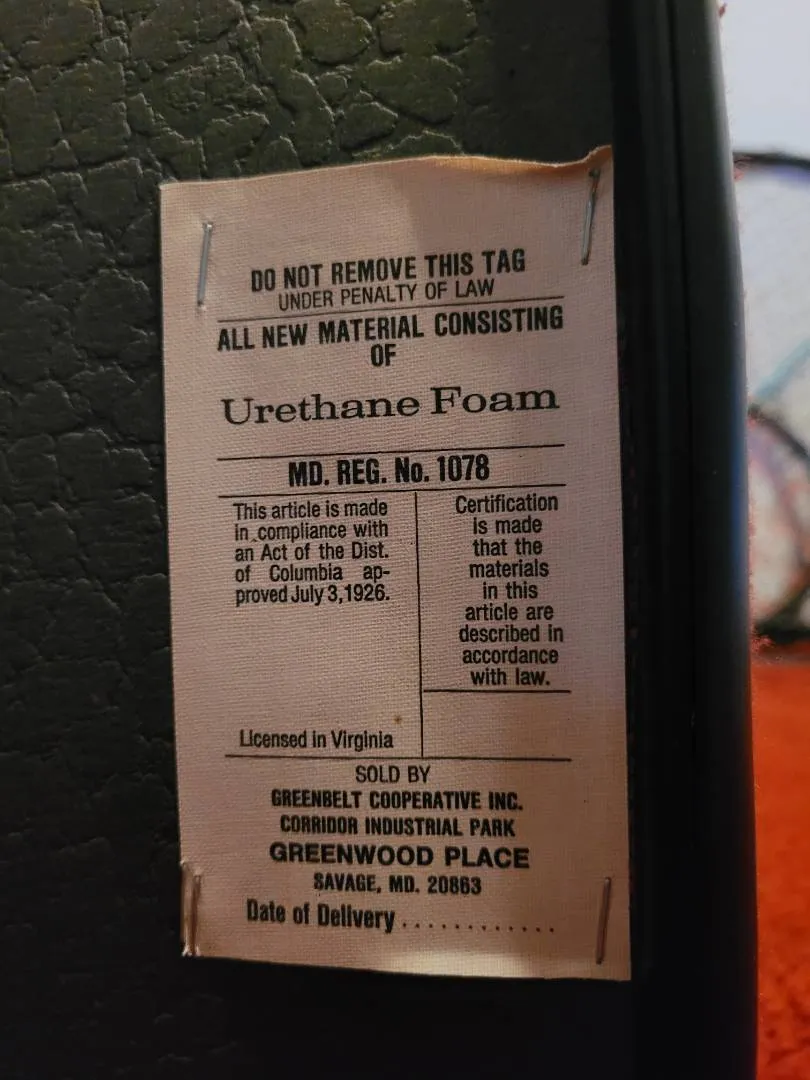 DO NOT REMOVE THIS TAG
UNDER PENALTY OF LAW
ALL NEW MATERIAL CONSISTING
OF
Urethane Foam
MD. REG. No. 1078
This article is made
in compliance with
an Act of the Dist.
of Columbia ap-
proved July 3,1926.
Licensed in Virginia
Certification
is made
that the
materials
in this
article are
described in
accordance
with law.
SOLD BY
GREENBELT COOPERATIVE INC.
CORRIDOR INDUSTRIAL PARK
GREENWOOD PLACE
SAVAGE, MD. 20863
Date of Delivery ............